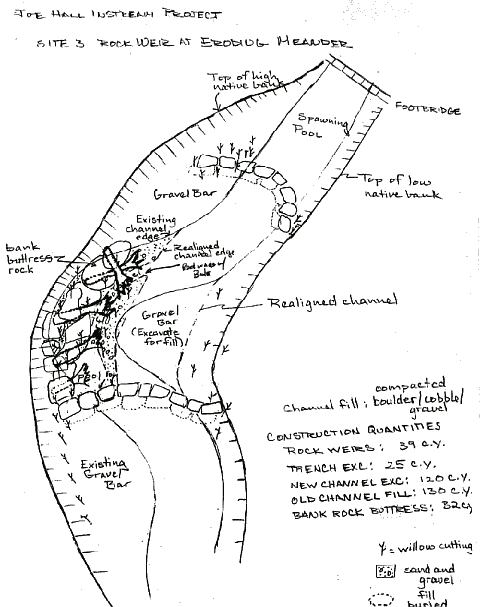 JOE HALL INSTREAM PROJECT
SITE 3 ROCK WEIR AT ERODING MEANDER
Top of high
native bank
FOOTBRIDGE
Spawning
Pool
Top of low
native bank
Gravel Bar
Existing
channel
edge
bank
buttress
rock
Realigned channel edge
Gravel
Bar
(Excavate
for fill)
Realigned channel
Pool
Channel fill: compacted
boulder/cobble/
gravel
CONSTRUCTION QUANTITIES
ROCK WEIRS: 39 C.Y.
TRENCH EXC: 25 C.Y.
NEW CHANNEL EXC: 120 C.Y.
OLD CHANNEL FILL: 130 C.Y.
BANK ROCK BUTTRESS: 32 cy
Existing
Gravel
Bar
= willow cutting
sand and
gravel
fill
buried